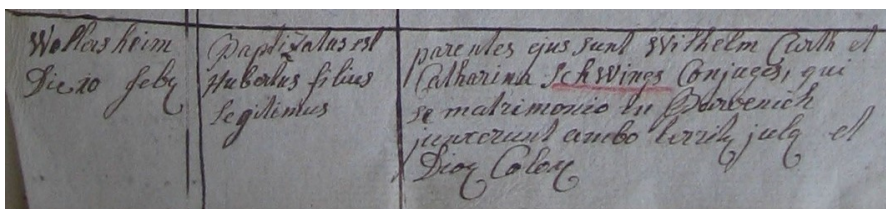 Wollersheim
Die 20 febr
Baptizatus est
Hubertus filius
legitimus
parentes ejus sunt Wilhelm Curth et
Catharina Schwings Conjuges, qui
se matrimonio in
junxerunt ambo territ julq et
Dioq Colon